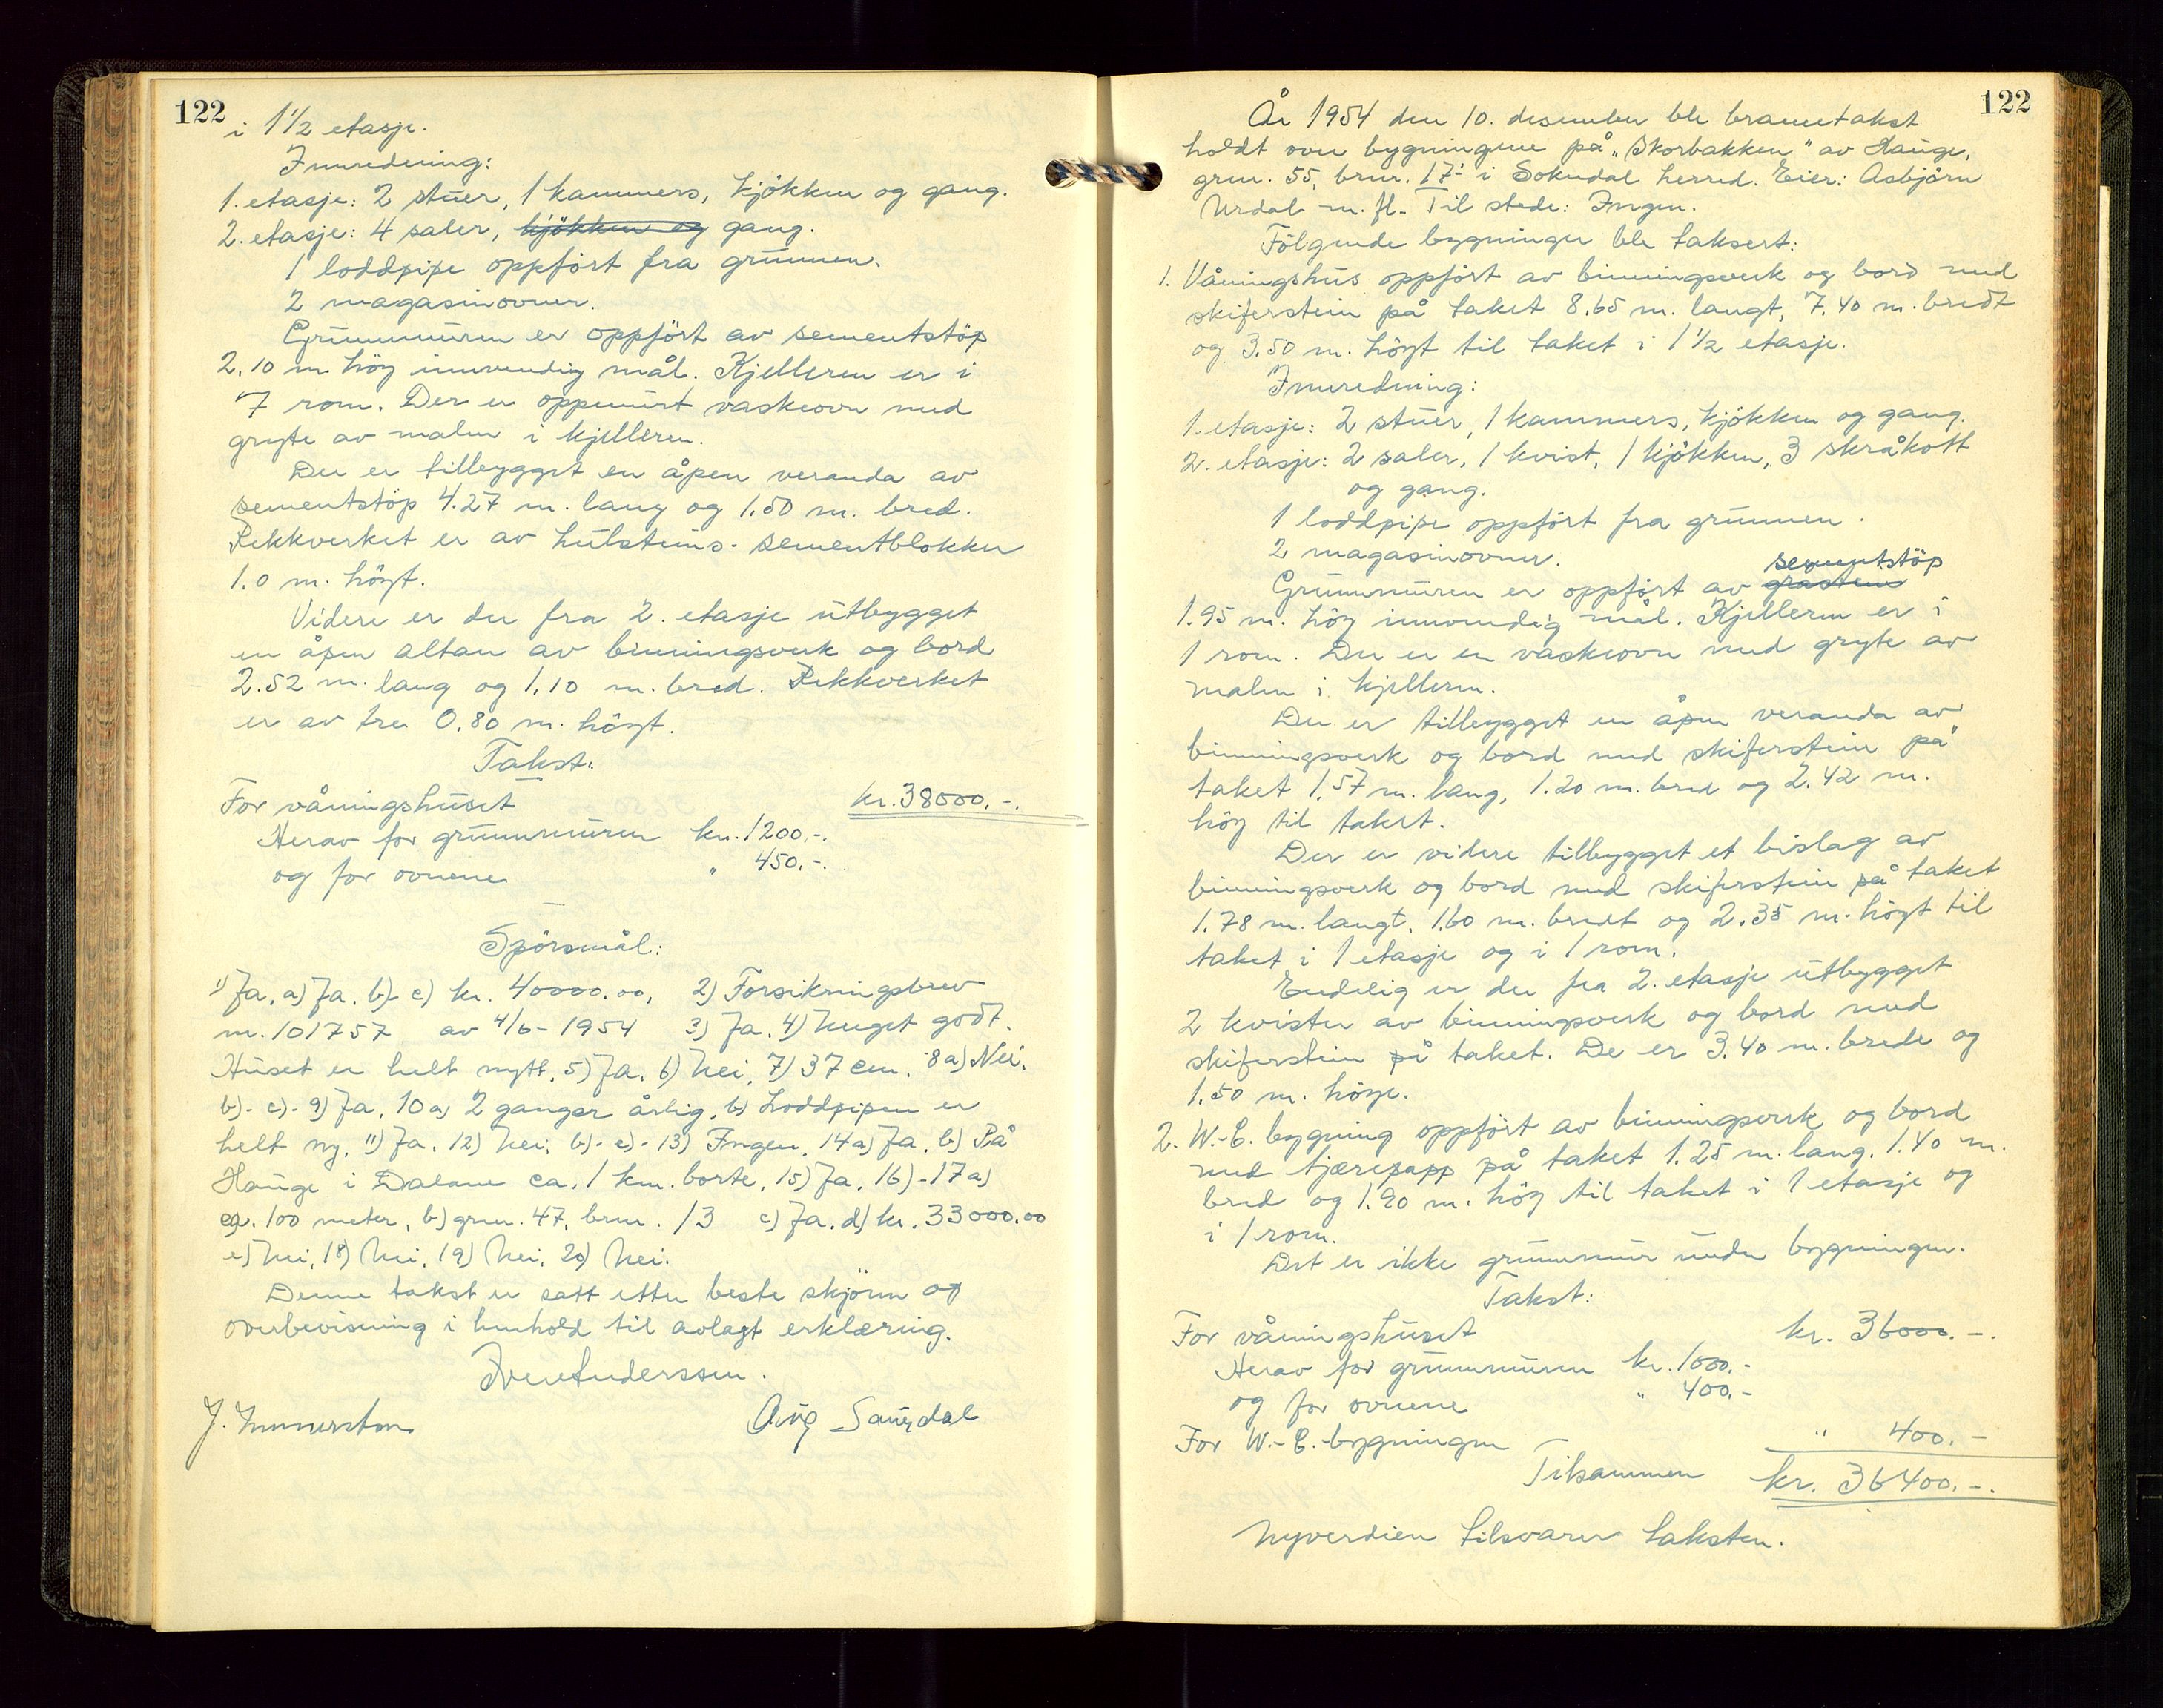 122
i 1 1/2 etasje.
Innredning:
1. etasje: 2 stuer, 1 kammers, kjökken og gang.
2. etasje: 4 saler, kjökken og gang.
1 loddpipe oppfört fra grunnen.
2 magasinovner.
Grunnmuren er oppfört av sementstöp
2,10 m. höy innvendig mål. Kjelleren er i
7 rom. Der er oppmurt vaskeovn med
gryte av malm i kjelleren.
Der er tilbygget en åpen veranda av
sementstöp 4.27 m. lang og 1.50 m. bred.
Rekkverket er av hulsteins- sementblokker
1.0 m. högt.
Videre er der fra 2. etasje utbygget
en åpen altan av binningsverk og bord
2.52 m. lang og 1,10 m. bred. Rekkverket
er av tre 0.80 m. högt.
Takst:
For våningshuset kr. 38000.-.
Herav for grunnmuren kr. 1200,-.
og for ovnene " 450,-.
Spörsmål:
1) Ja, a) Ja. b)- c) kr. 40000.00, 2) Forsikringsbrev
nr. 101757 av 4/6-1954 3) Ja. 4) Meget godt.
Huset er helt nytt, 5) Ja, 6) Nei, 7) 37 cm. 8a) Nei.
b)- c)- 9) Ja, 10a) 2 ganger årlig, b) Loddpipen er
helt ny, 11) Ja, 12) Nei, b)- c)- 13) Ingen, 14a) Ja, b) På
Hauge i Dalane ca. 1 km. borte, 15) Ja, 16)- 17a)
ca. 100 meter, b) grnr. 47, brnr. 13 c) Ja. d) kr. 33000.00
e) Nei, 18) Nei, 19) Nei, 20) Nei.
Denne takst er satt etter beste skjönn og
overbevisning i henhold til avlagt erklæring.
Iver Anderssen.
J. Aug Saurdal
122
År 1954 den 10. desember ble branntakst
holdt over bygningene på "Skorbakken" av Hauge,
grnr. 55, brnr. 17 i Sokndal herred. Eier: Asbjörn
Urdal m. fl. Til stede: Ingen.
Fölgende bygninger ble taksert:
1. Våningshus oppfört av binningsverk og bord med
skiferstein på taket 8.65 m. langt, 7.40 m. bredt
og 3.50 m. högt til taket i 1 1/2 etasje.
Innredning:
1. etasje: 2 stuer, 1 kammers, kjökken og gang.
2. etasje: 2 saler, 1 kvist, 1 kjökken, 3 skråkott
og gang.
1 loddpipe oppfört fra grunnen.
2 magasinovner.
sementstöp
Grunnmuren er oppfört av gråsteins
1.95 m. höy innvendig mål. Kjelleren er i
1 rom. Der er en vaskeovn med gryte av
malm i kjelleren.
Der er tilbygget en åpen veranda av
binningsverk og bord med skiferstein på
taket 1.57 m. lang, 1.20 m. bred og 2.42 m.
höy til takst.
Der er videre tilbygget et bislag av
binningsverk og bord med skiferstein på taket
1.78 m. langt, 1.60 m. bredt og 2.35 m. högt til
taket i 1 etasje og i 1 rom.
Endelig er der fra 2. etasje utbygget
2 kvister av binningsverk og bord med
skiferstein på taket. De er 3.40 m. brede og
1.50 m. höye.
2. W.-C. bygning oppfört av binningsverk og bord
med tjærepapp på taket 1.25 m. lang, 1.40 m.
bred og 1.90 m. höy til taket i 1 etasje og
i 1 rom.
Det er ikke grunnmur under bygningen.
Takst:
For våningshuset kr. 36000.-.
Herav for grunnmuren kr. 1000.-
og for ovnene " 400.-
For W.-C.-bygningen " 400.-
Tilsammen kr. 36400.-.
Nyverdien tilsvarer taksten.